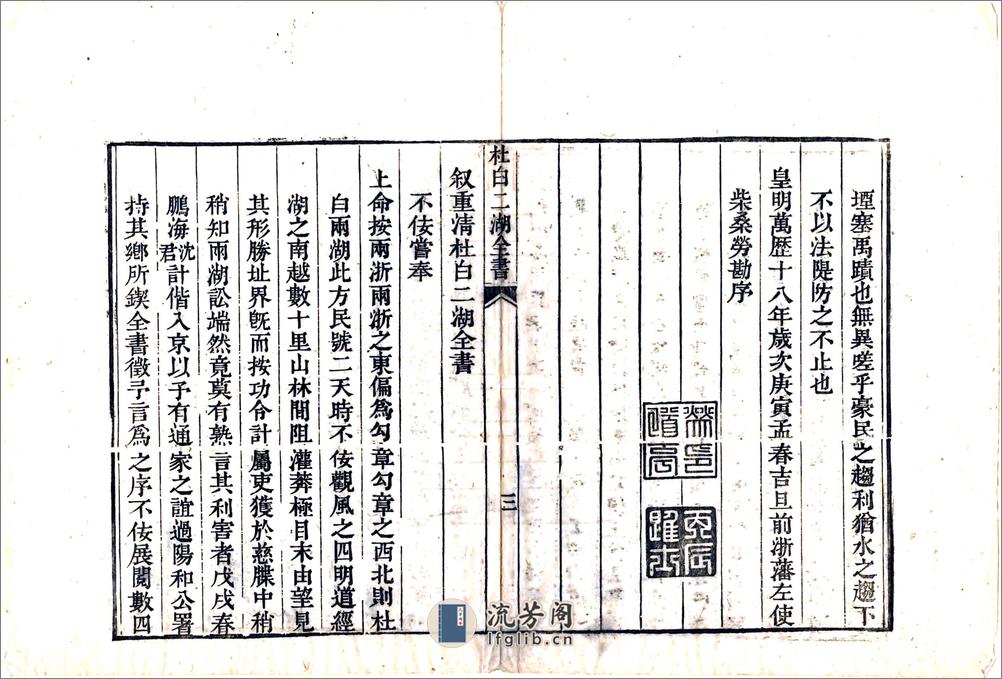 堙塞禹蹟也無異嗟乎豪民之趨利猶水之趨下
不以法隄防之不止也
皇明萬歷十八年歲次庚寅孟春吉旦前浙藩左使
柴桑勞勘序
杜白二湖全書
三
叙重清杜白二湖全書
不佞嘗奉
上命按兩浙兩浙之東偏爲勾章勾章之西北則杜
白兩湖此方民號二天時不佞觀風之四明道經
湖之南越數十里山林間阻灌莽極目末由望見
其形勝址界旣而按功令計屬吏獲於慈牒中稍
稍知兩湖訟端然竟莫有熟言其利害者戊戌春
鵬海沈君計偕入京以予有通家之誼過陽和公署
持其鄉所鍥全書徵予言爲之序不佞展閱數四
流芳阁
lfglib.cn